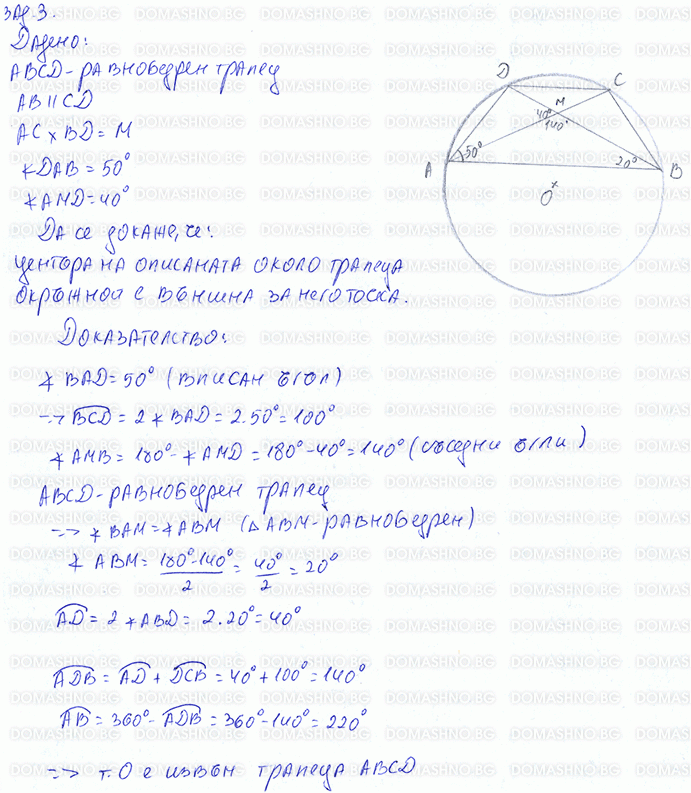 зад. 3.
Дадено:
ABCD - равнобедрен трапец
AB II CD
AC x BD = M
∢DAB = 50°
∢AMD = 40°
Да се докаже, че:
центора на описаната около трапеца
окръжной с външна за него тоска.
Доказателство:
∢BAD = 50° (вписан ъгъл)
=> ⌒BCD = 2∢BAD = 2.50° = 100°
∢AMB = 180° - ∢AMD = 180° - 40° = 140° (съседни ъгли)
ABCD - равнобедрен трапец
=> ∢BAM = ∢ABM (△ABM - равнобедрен)
∢ABM = (180° - 140°)/2 = 40°/2 = 20°
⌒AD = 2∢ABD = 2.20° = 40°
⌒ADB = ⌒AD + ⌒DCB = 40° + 100° = 140°
⌒AB = 360° - ⌒ADB = 360° - 140° = 220°
=> т. O е извън трапеца ABCD
D
C
M
40°
140°
A
50°
20°
B
O
DOMASHNO.BG